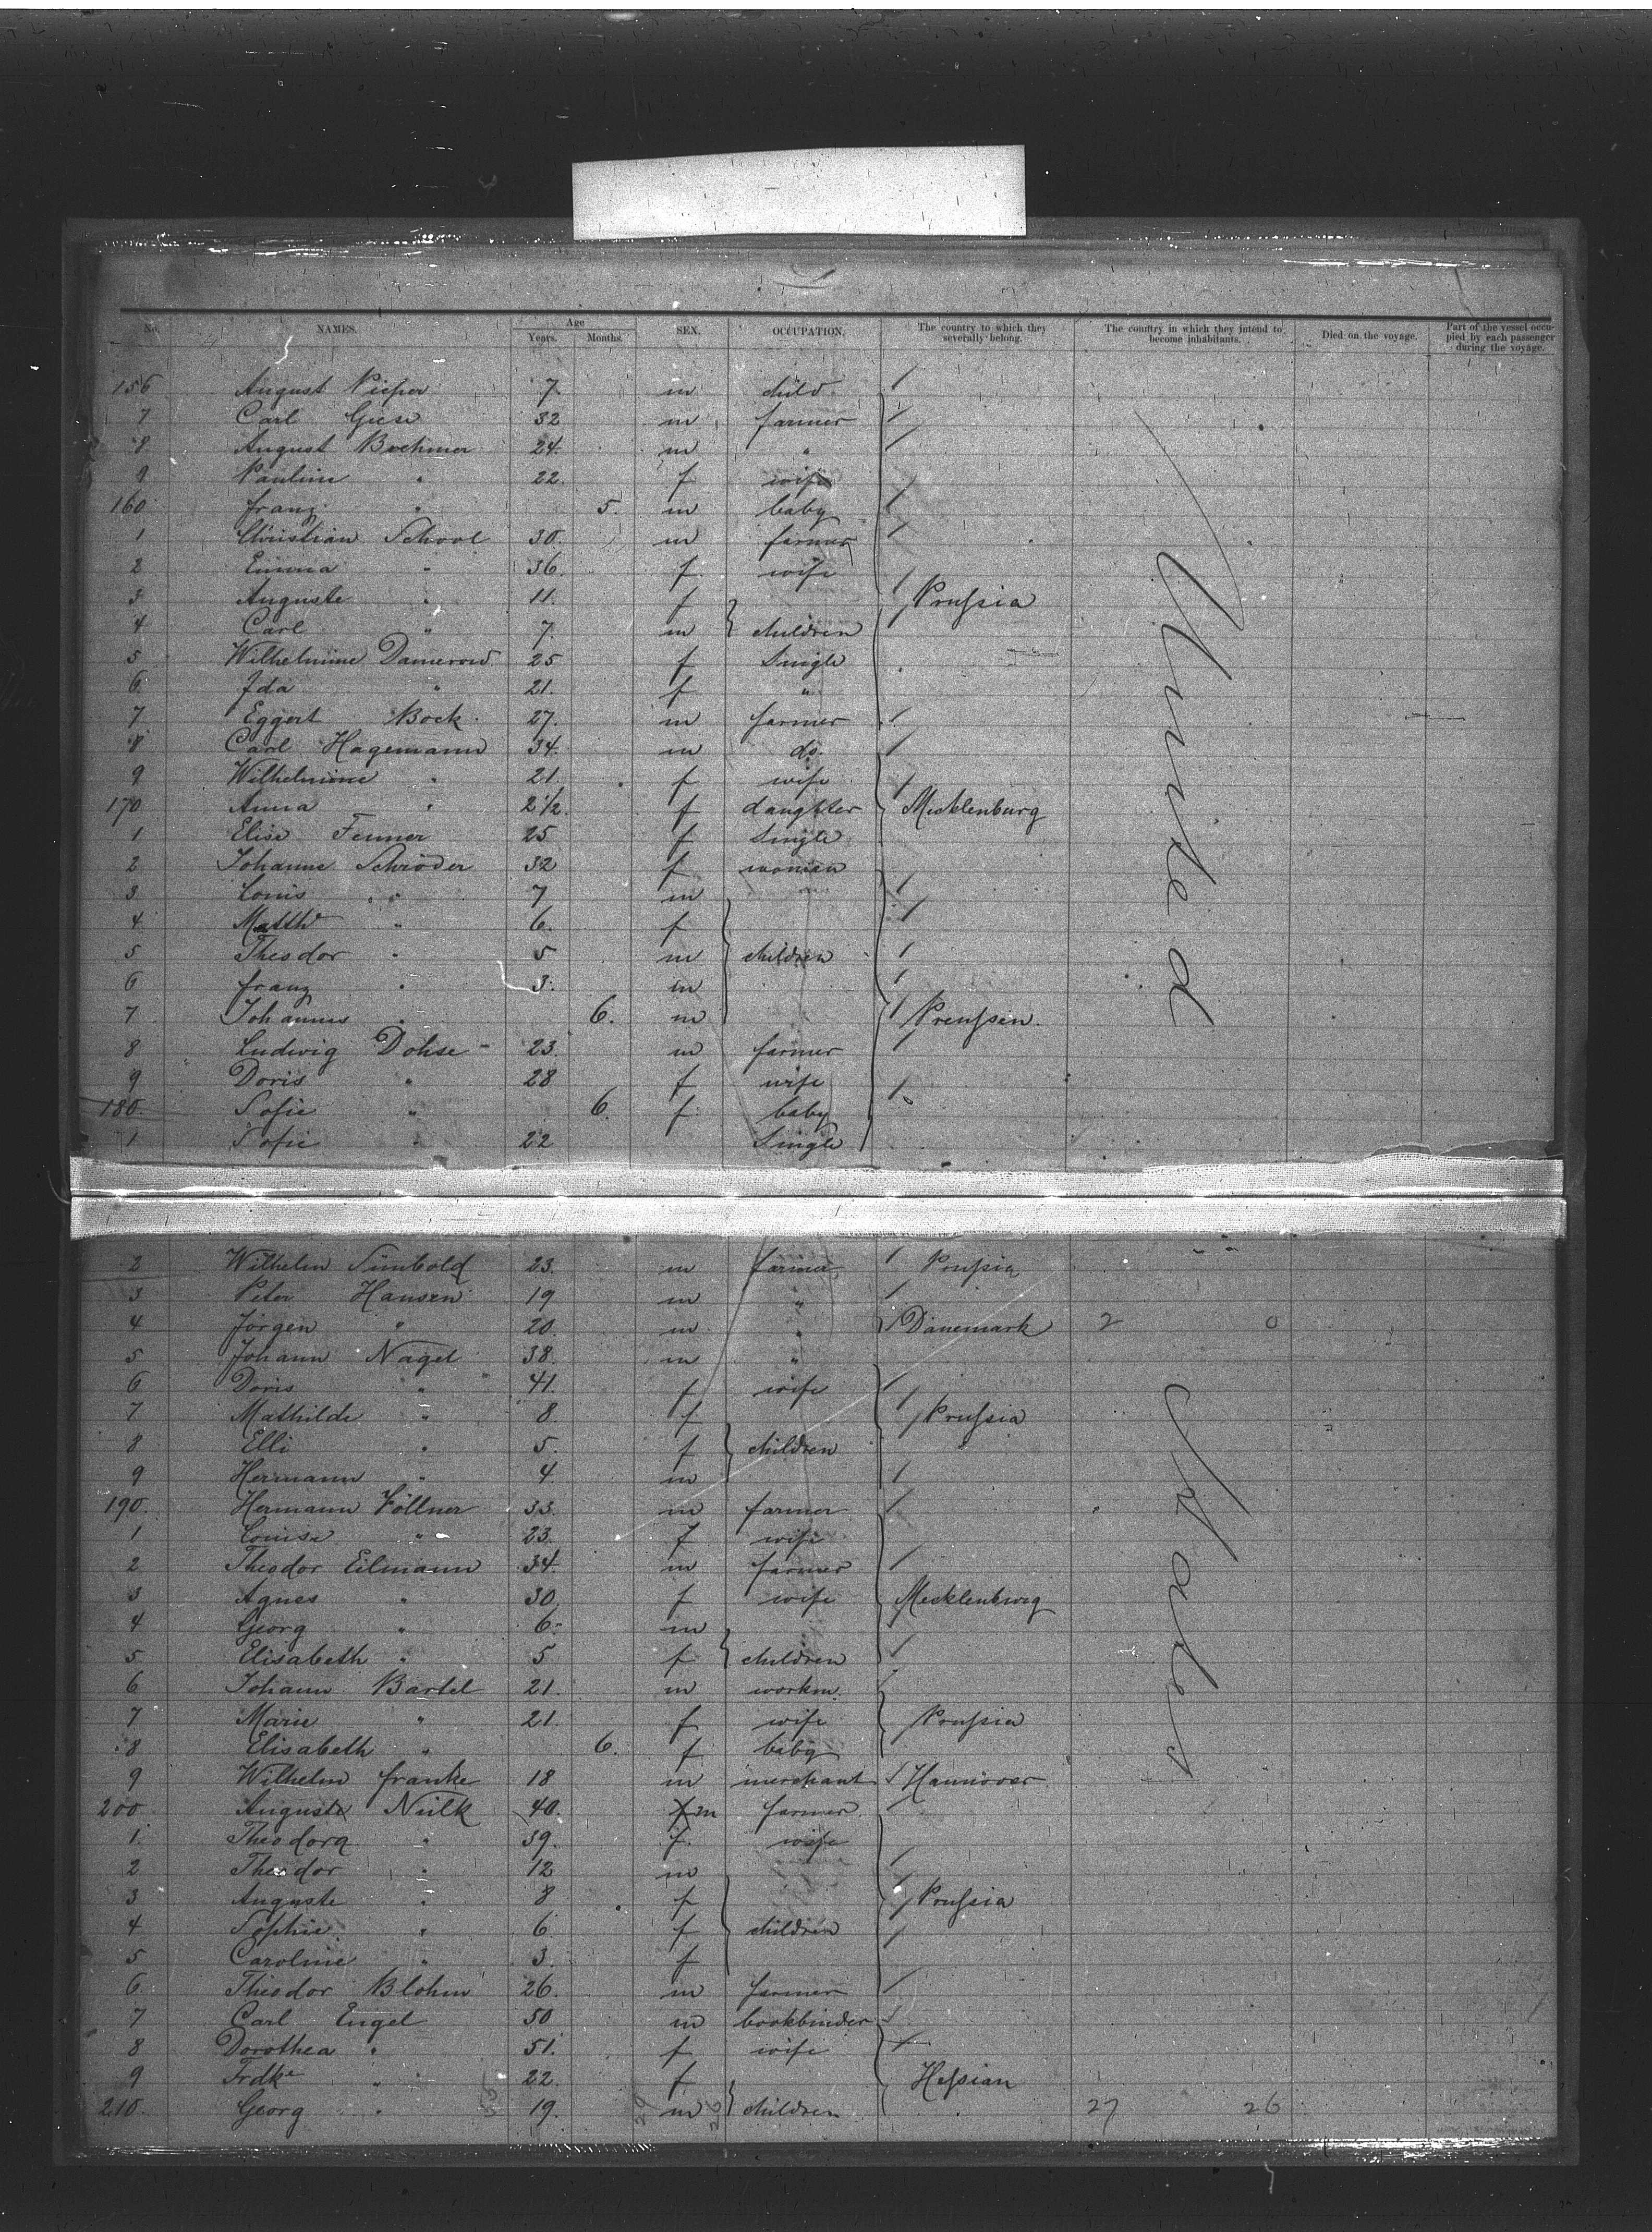 No. NAMES. Age Years. Months. SEX. OCCUPATION. The country to which they severally belong. The country in which they intend to become inhabitants. Died on the voyage. Part of the vessel occupied by each passenger during the voyage.
156 August Pieper 7. m child
7 Carl Giese 32 m farmer
8 August Boehmer 24. m "
9 Pauline " 22. f wife
160 franz " 5. m baby
1 Christian School 30. m farmer
2 Emma " 36. f wife
3 Auguste " 11. f Prussia
4 Carl " 7. m children
5 Wilhelmine Damerow 25 f Single
6 Ida " 21. f "
7 Eggert Bock 27. m farmer
8 Carl Hagemann 34. m do.
9 Wilhelmine " 21. f wife
170 Anna " 2 1/2 f daughter Mecklenburg
1 Elise Fenner 25 f Single
2 Johanne Schröder 32 f woman
3 Louis " 7 m
4 " 6. f
5 Theodor " 5 m children
6 franz " 3. m
7 Johannes " 6. m Preussen.
8 Ludwig Dohse 23. m farmer
9 Doris " 28 f wife
180. Sofie " 6. f. baby
1 Sofie " 22 Single
2 Wilhelm Simbold 23. m farmer Prussia
3 Peter Hansen 19 m "
4 Jörgen " 20. m " Dänemark 2 0
5 Johann Nagel 38. m "
6 Doris " 41. f wife
7 Mathilde " 8. f Prussia
8 Elli " 5. f children
9 Hermann " 4. m
190. Hermann Föllner 33. m farmer
1 Louise " 23. f wife
2 Theodor Eilmann 34. m farmer
3 Agnes " 30. f wife Mecklenburg
4 Georg " 6. m
5 Elisabeth " 5 f children
6 Johann Bartel 21. m workm.
7 Marie " 21. f wife Prussia
8 Elisabeth " 6. f baby
9 Wilhelm franke 18 m merchant Hannover
200 August Nülk 40. m farmer
1. Theodora " 39. f. wife
2 Theodor " 12 m
3 Auguste " 8 f Prussia
4 Sophie " 6. f children
5 Caroline " 3. f
6 Theodor Blohm 26. m farmer
7 Carl Engel 50 m bookbinder
8 Dorothea " 51. f wife
9 Frdke " 22. f Hessian
210. Georg " 19. m children 27 26